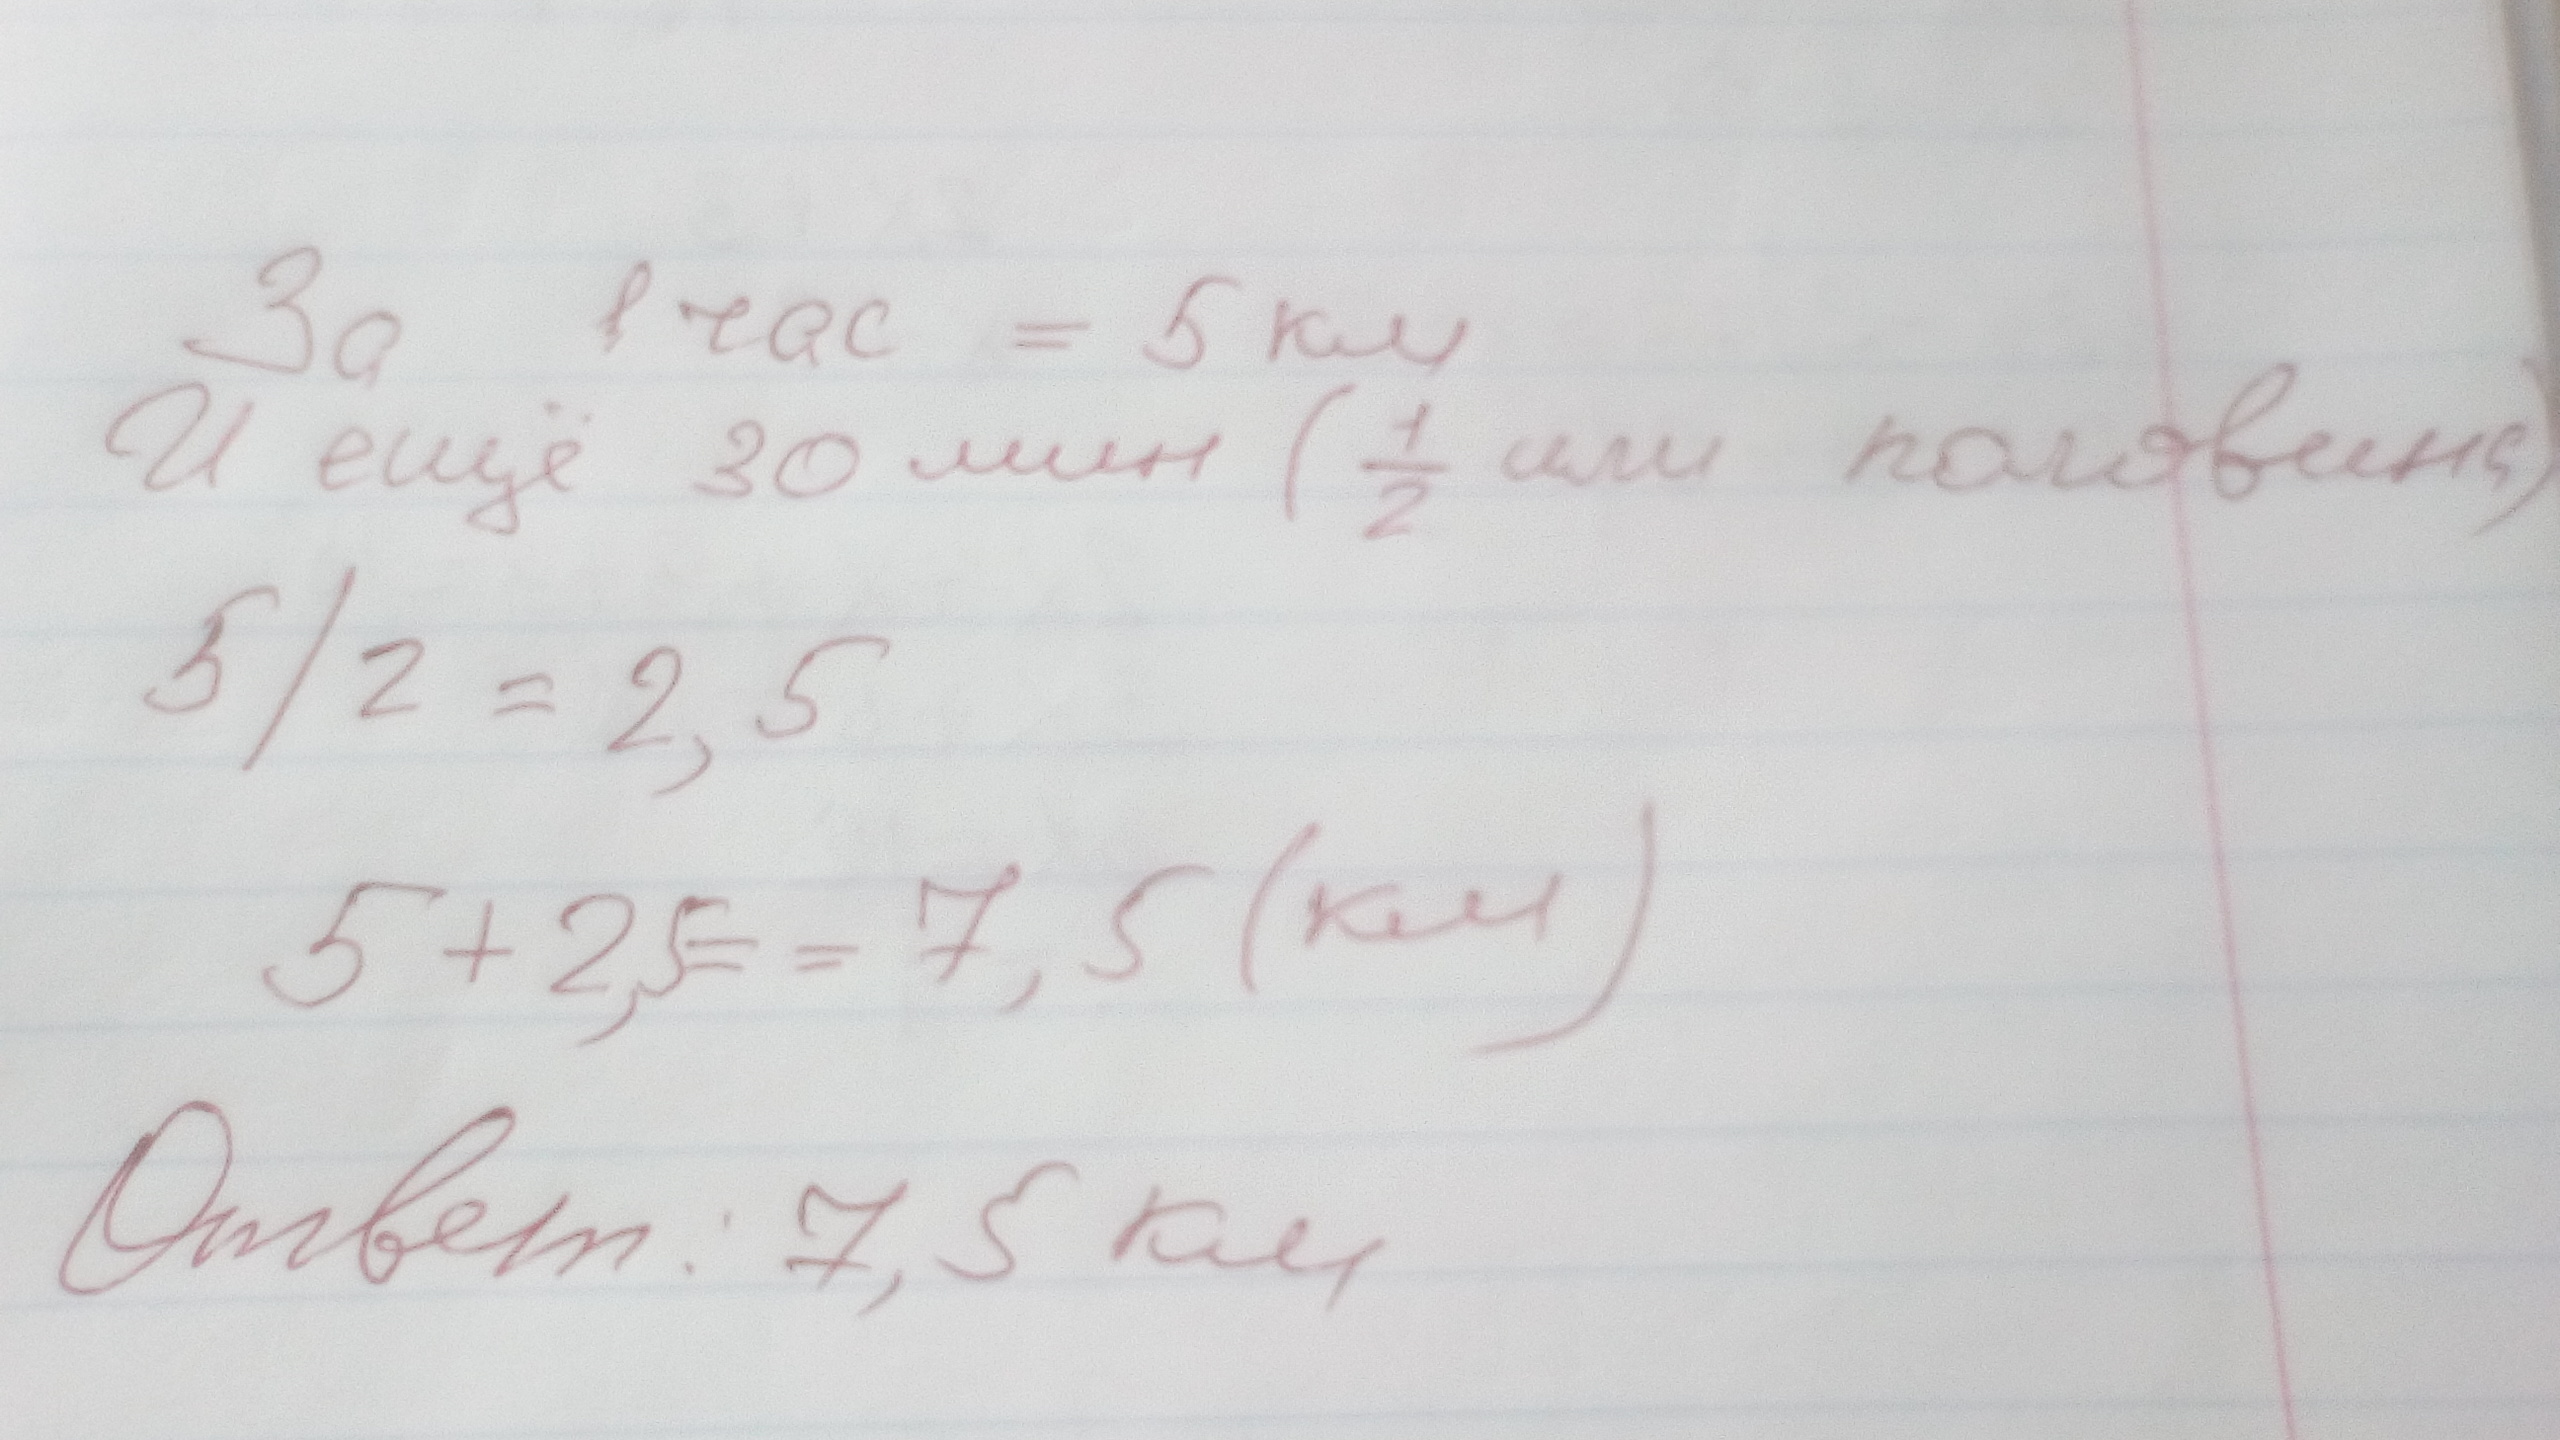 За 1 час = 5 км
И ещё 30 мин (1/2 или половина)
5/2 = 2,5
5 + 2,5 = = 7,5 (км)
Ответ: 7,5 км